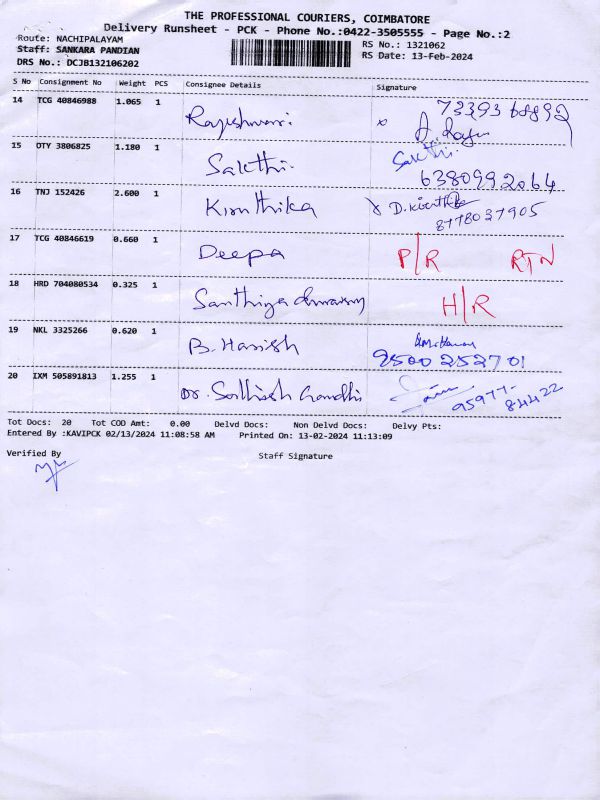 THE PROFESSIONAL COURIERS, COIMBATORE
Delivery Runsheet - PCK - Phone No.:0422-3505555 - Page No.:2
Route: NACHIPALAYAM
Staff: SANKARA PANDIAN
DRS No.: DCJB132106202
RS No.: 1321062
RS Date: 13-Feb-2024
S No Consignment No Weight PCS Consignee Details Signature
14 TCG 40846988 1.065 1 Rajeshwari x
15 OTY 3806825 1.180 1 Sakthi. Sakthi.
6380992064
16 TNJ 152426 2.600 1 Kirruthika x D.
8778037905
17 TCG 40846619 0.660 1 Deepa P/R RTN
18 HRD 704080534 0.325 1 Santhiya H/R
19 NKL 3325266 0.620 1 B. Harish
9500252701
20 IXM 505891813 1.255 1 Dr. Sathish Gandhi
95977-
84422
Tot Docs: 20 Tot COD Amt: 0.00 Delvd Docs: Non Delvd Docs: Delvy Pts:
Entered By :KAVIPCK 02/13/2024 11:08:58 AM Printed On: 13-02-2024 11:13:09
Verified By
Staff Signature